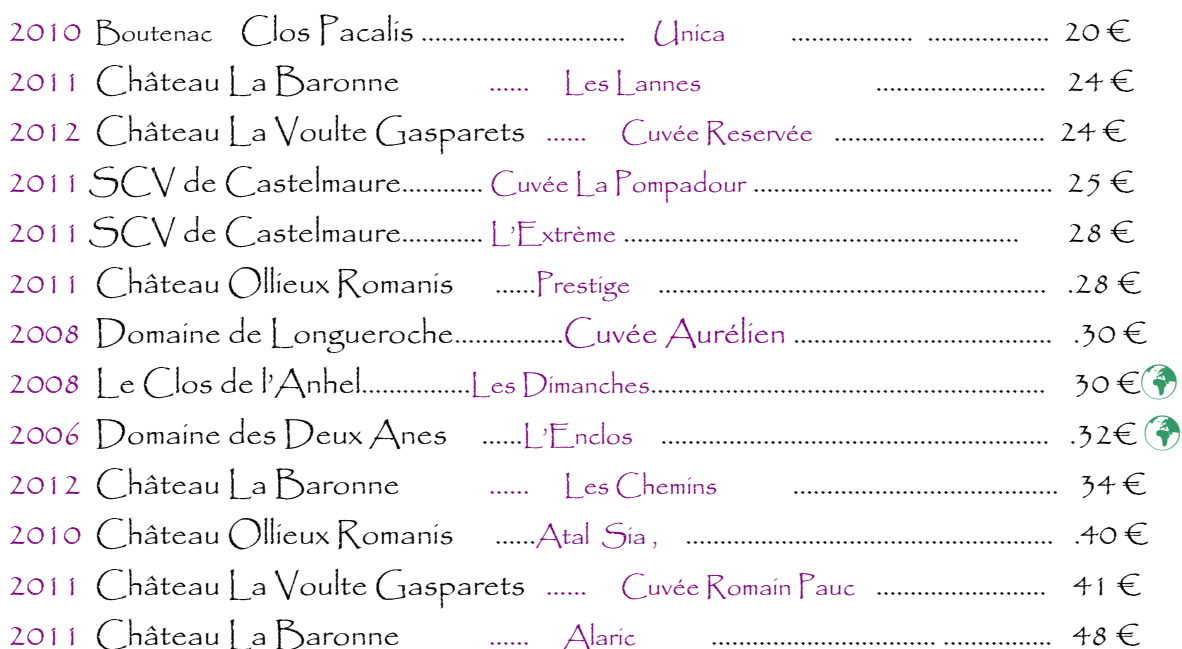 2010 Boutenac Clos Pacalis ............................ Unica ................. ................. 20 €
2011 Château La Baronne ...... Les Lannes ........................ 24 €
2012 Château La Voulte Gasparets ...... Cuvée Reservée .............................. 24 €
2011 SCV de Castelmaure............ Cuvée La Pompadour .......................................... 25 €
2011 SCV de Castelmaure............ L'Extrème ........................................................ 28 €
2011 Château Ollieux Romanis ......Prestige ....................................................... .28 €
2008 Domaine de Longueroche...............Cuvée Aurélien ..................................... .30 €
2008 Le Clos de l'Anhel...............Les Dimanches........................................................ 30 €
2006 Domaine des Deux Anes ......L'Enclos ....................................................... .32€
2012 Château La Baronne ...... Les Chemins ...................................... 34 €
2010 Château Ollieux Romanis ......Atal Sia , .................................................... .40 €
2011 Château La Voulte Gasparets ...... Cuvée Romain Pauc ........................ 41 €
2011 Château La Baronne ...... Alaric ................................ ............... 48 €